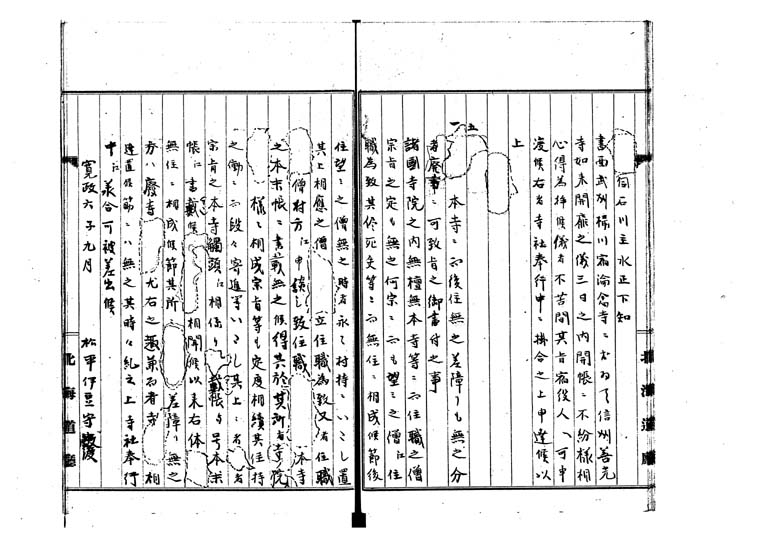 同石川主水正下知
書面武州桶川宿淪念寺ニおゐて信州善光
寺如来開扉之儀三日之内開帳ニ不紛様相
心得為拝候儀者不苦間其旨宿役人へ可申
渡候右者寺社奉行申ニ掛合之上申達候以
上
一五
本寺ニ而後住無之差障りも無之分
者廃事ニ可致旨之御書付之事
諸国寺院之内無檀無本寺等ニ而住職之僧
宗旨之定も無之何宗ニ而も望ミ之僧江住
職為致其終死失等ニ而無住ニ相成候節後
住望ミ之僧無之時者永々村持ニいたし置
其上相應之僧 立住職為致又者住職
僧村方江申談シ致住職 本寺
之本末帳ニ書載無之候得共於其所者寺院
様ニ相成宗旨等も定度相續其住持
之働ニ而段々寄進等いたし其上ニ者 者
宗旨之本寺觸頭江相伺り 載帳与号本末
帳江書載候 相聞候以来右体
無住ニ相成候節其所 差障り無之
分ハ廃寺 尤右之 者寺 相
違置候節ニハ無之其時々糺之上寺社奉行
中江承合可被差出候
寛政六子九月 松平伊豆守
北海道廳
北海道廳